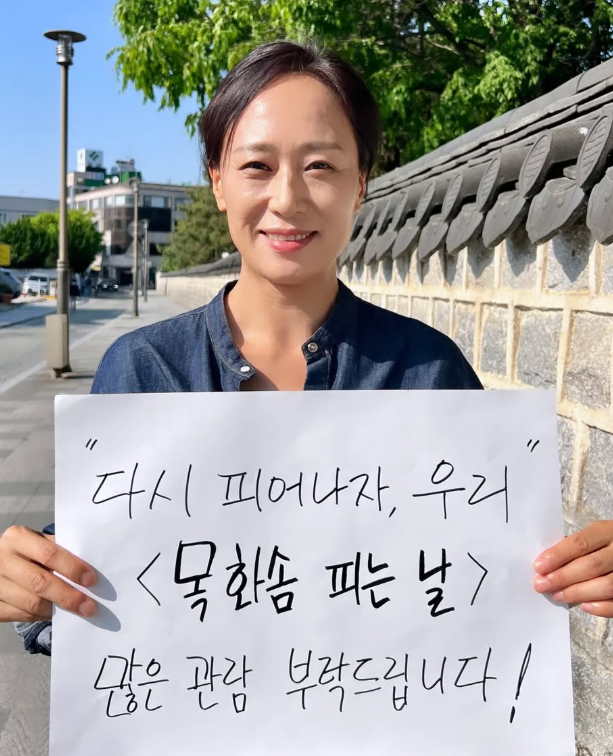 "다시 피어나자, 우리"
<목화솜 피는 날>
많은 관람 부락드립니다!